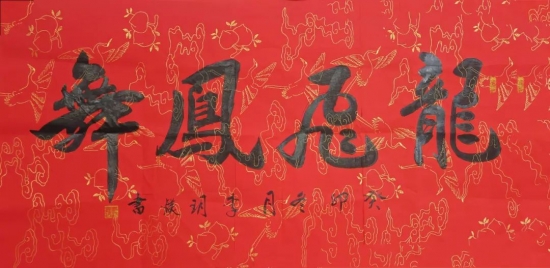 龍飛鳳舞
癸卯冬月李玥書